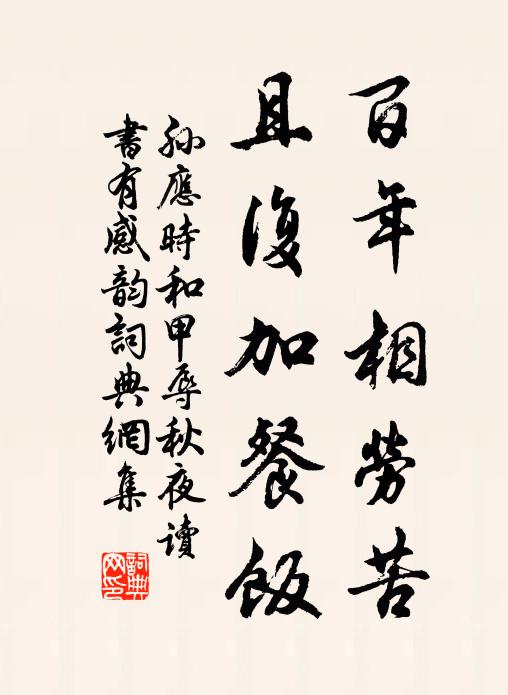 百年相勞苦
且復加餐飯
孫應時和甲辱秋夜讀
書有感韵詞典網集
詞典網印